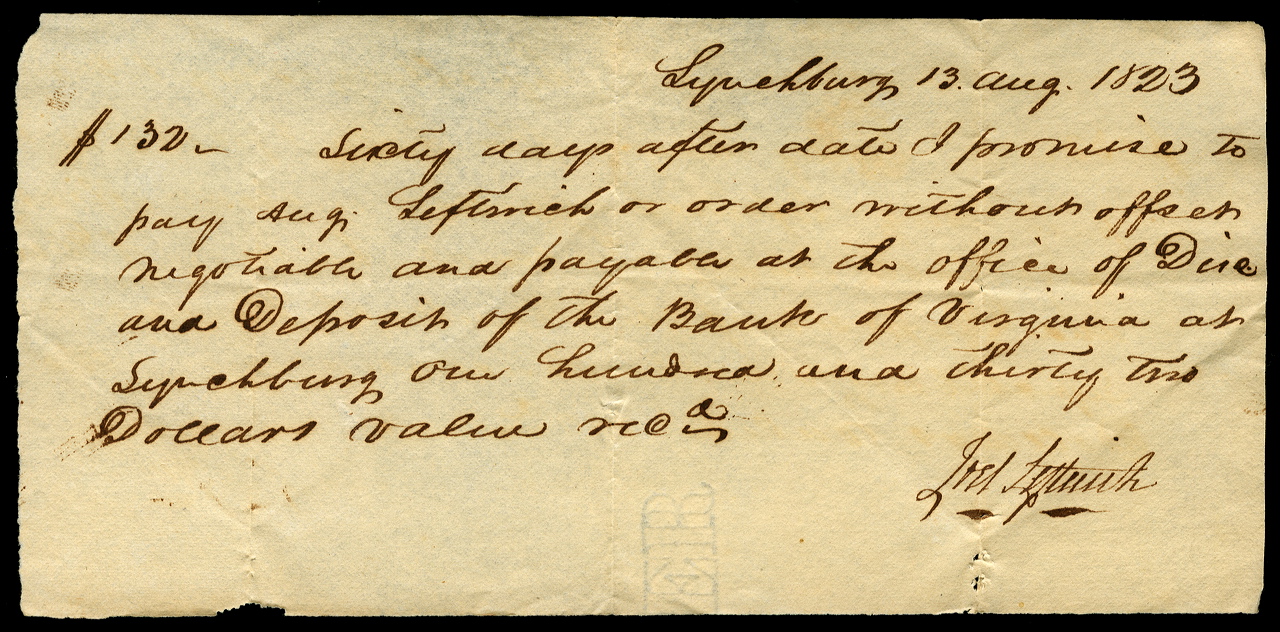 Lynchburg 13. Aug. 1823
$132– Sixty days after date I promise to
pay Aug. Leftwich or order without offset
negotiable and payable at the office of Disc
and Deposit of the Bank of Virginia at
Lynchburg One hundred and thirty two
Dollars value recd
Joel Leftwich